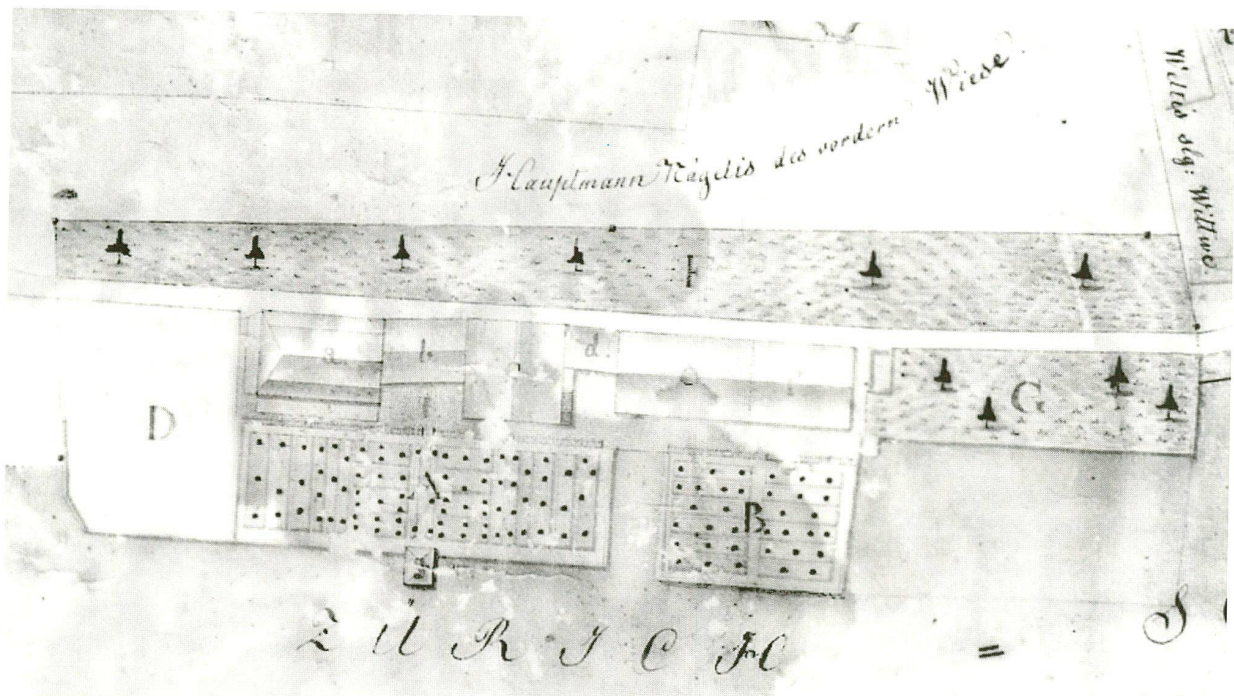 Hauptmann Nägelis des vordern Wiese
Weltis slg: Wittwe
I
a.
b.
d.
D
G
B
ZÜRICH = S